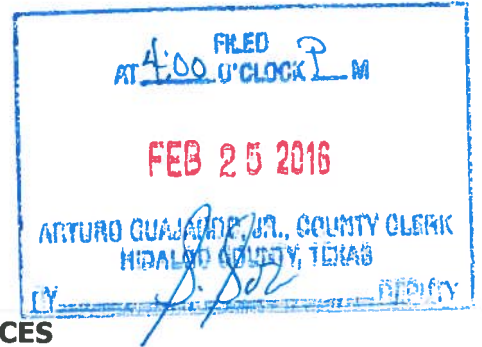 FILED
AT 4:00 O'CLOCK P M
FEB 25 2016
ARTURO GUAJARDO, JR., COUNTY CLERK
HIDALGO COUNTY, TEXAS
BY DEPUTY
CES